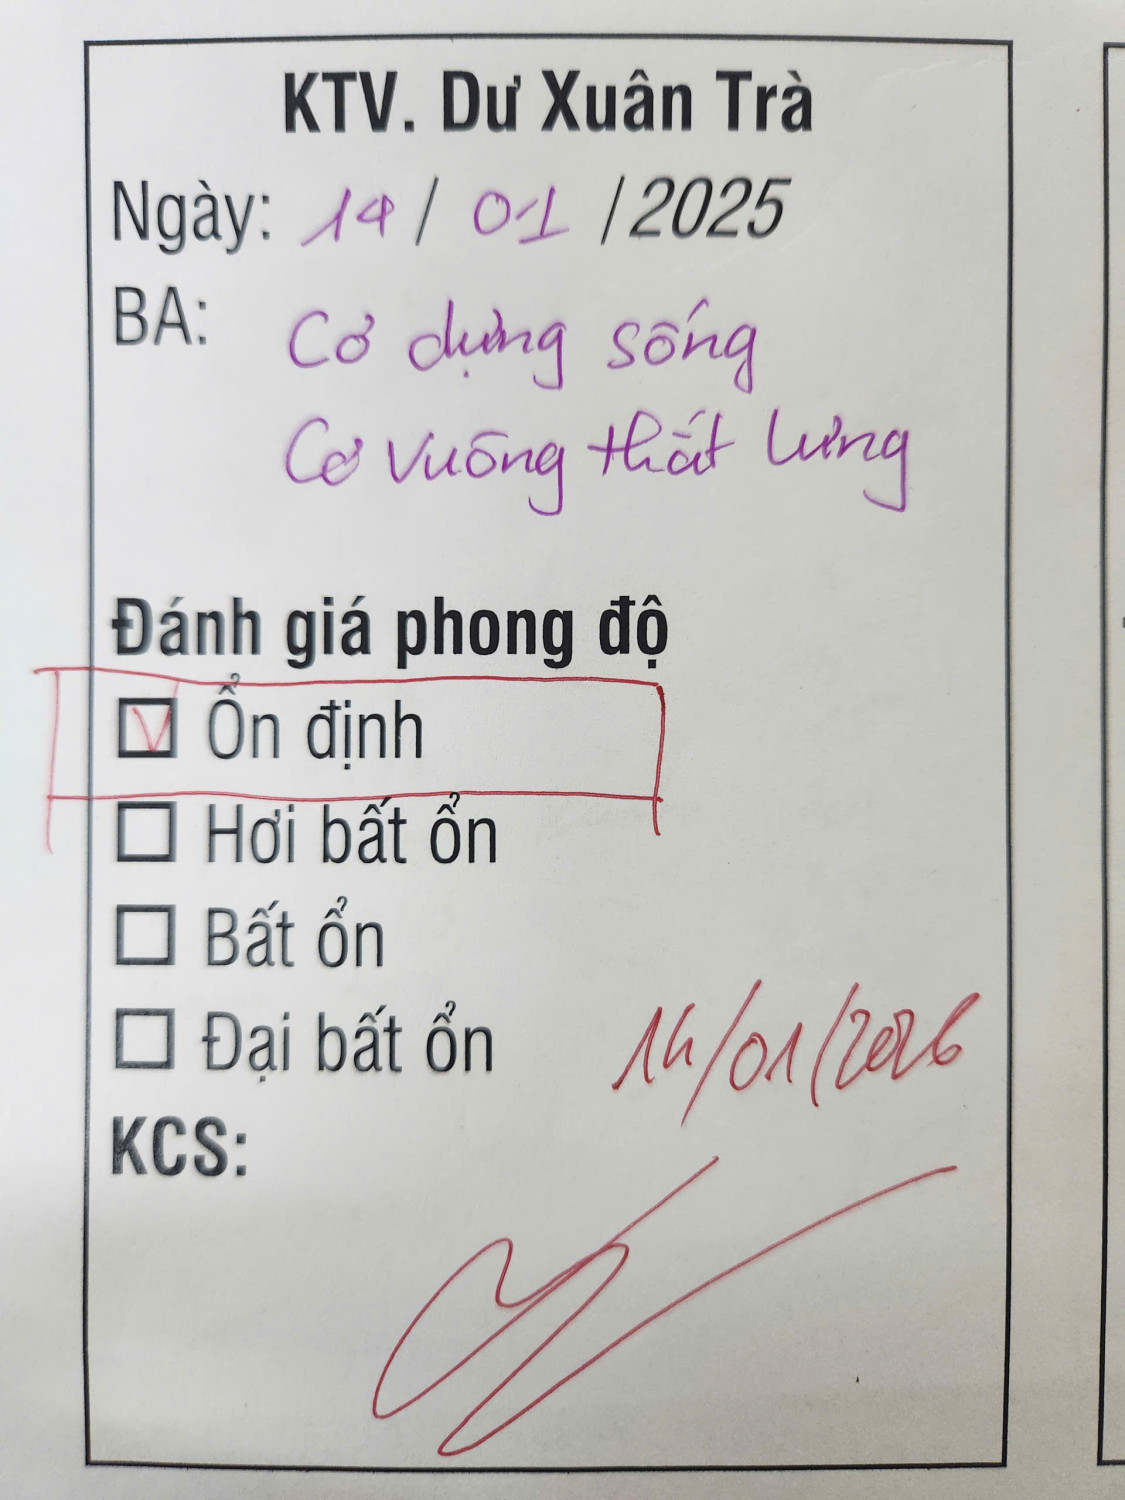 KTV. Dư Xuân Trà
Ngày: 14 / 01 / 2025
BA: Cơ dựng sống
Cơ vuông thắt lưng
Đánh giá phong độ
Ổn định
Hơi bất ổn
Bất ổn
Đại bất ổn
14/01/2026
KCS: